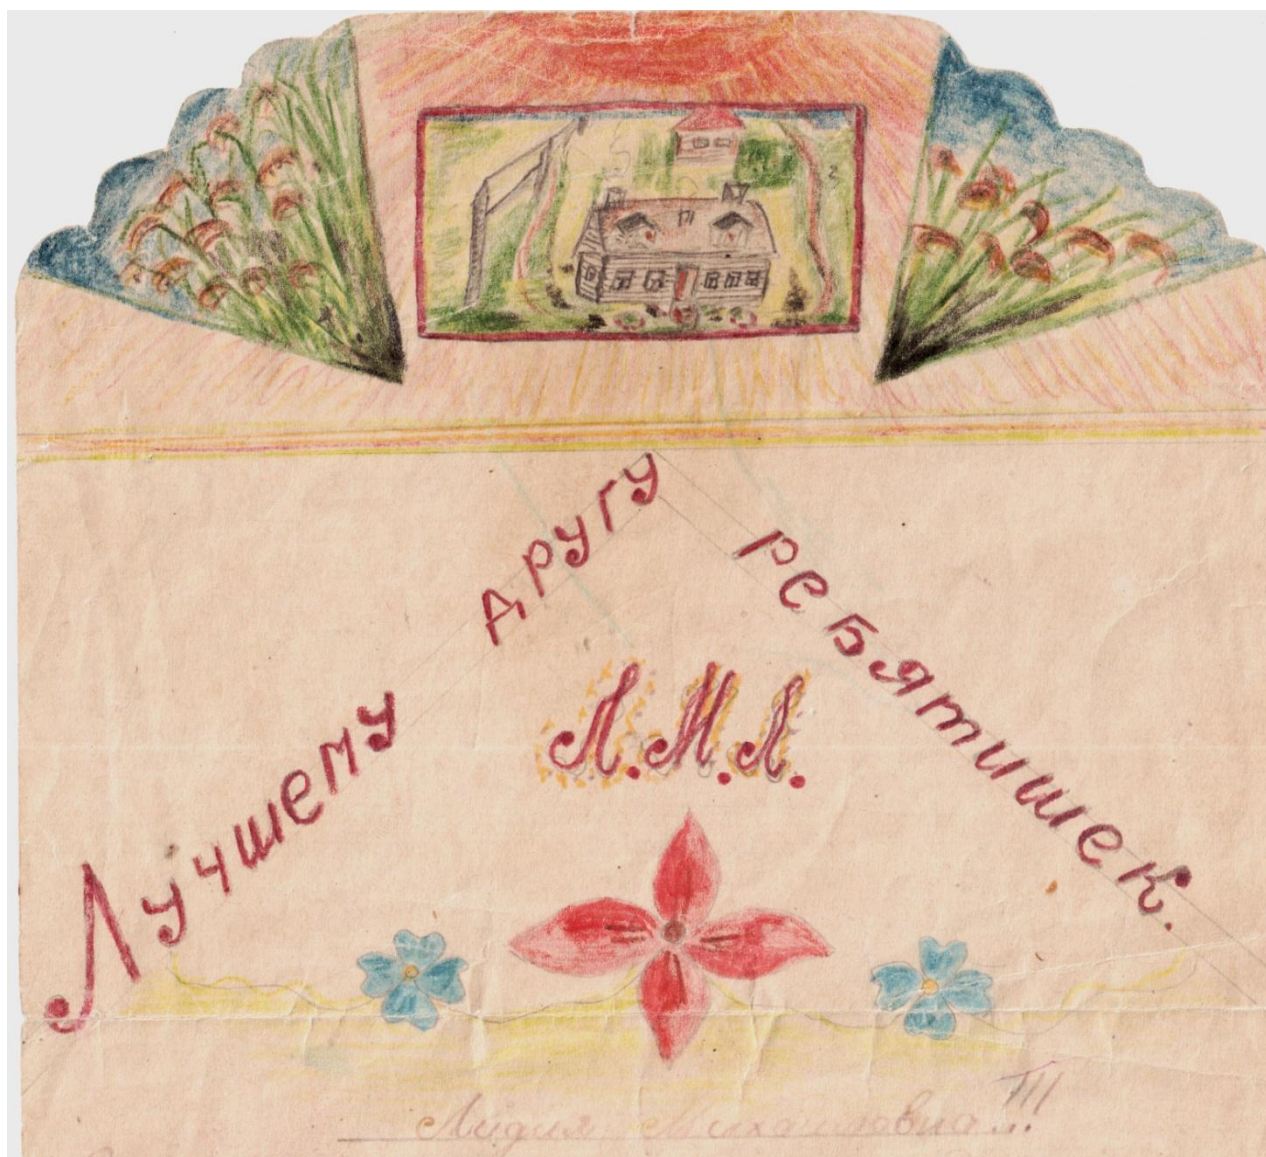 Лучшему другу ребятишек.
Л.М.Л.
Лидия Михайловна!!!